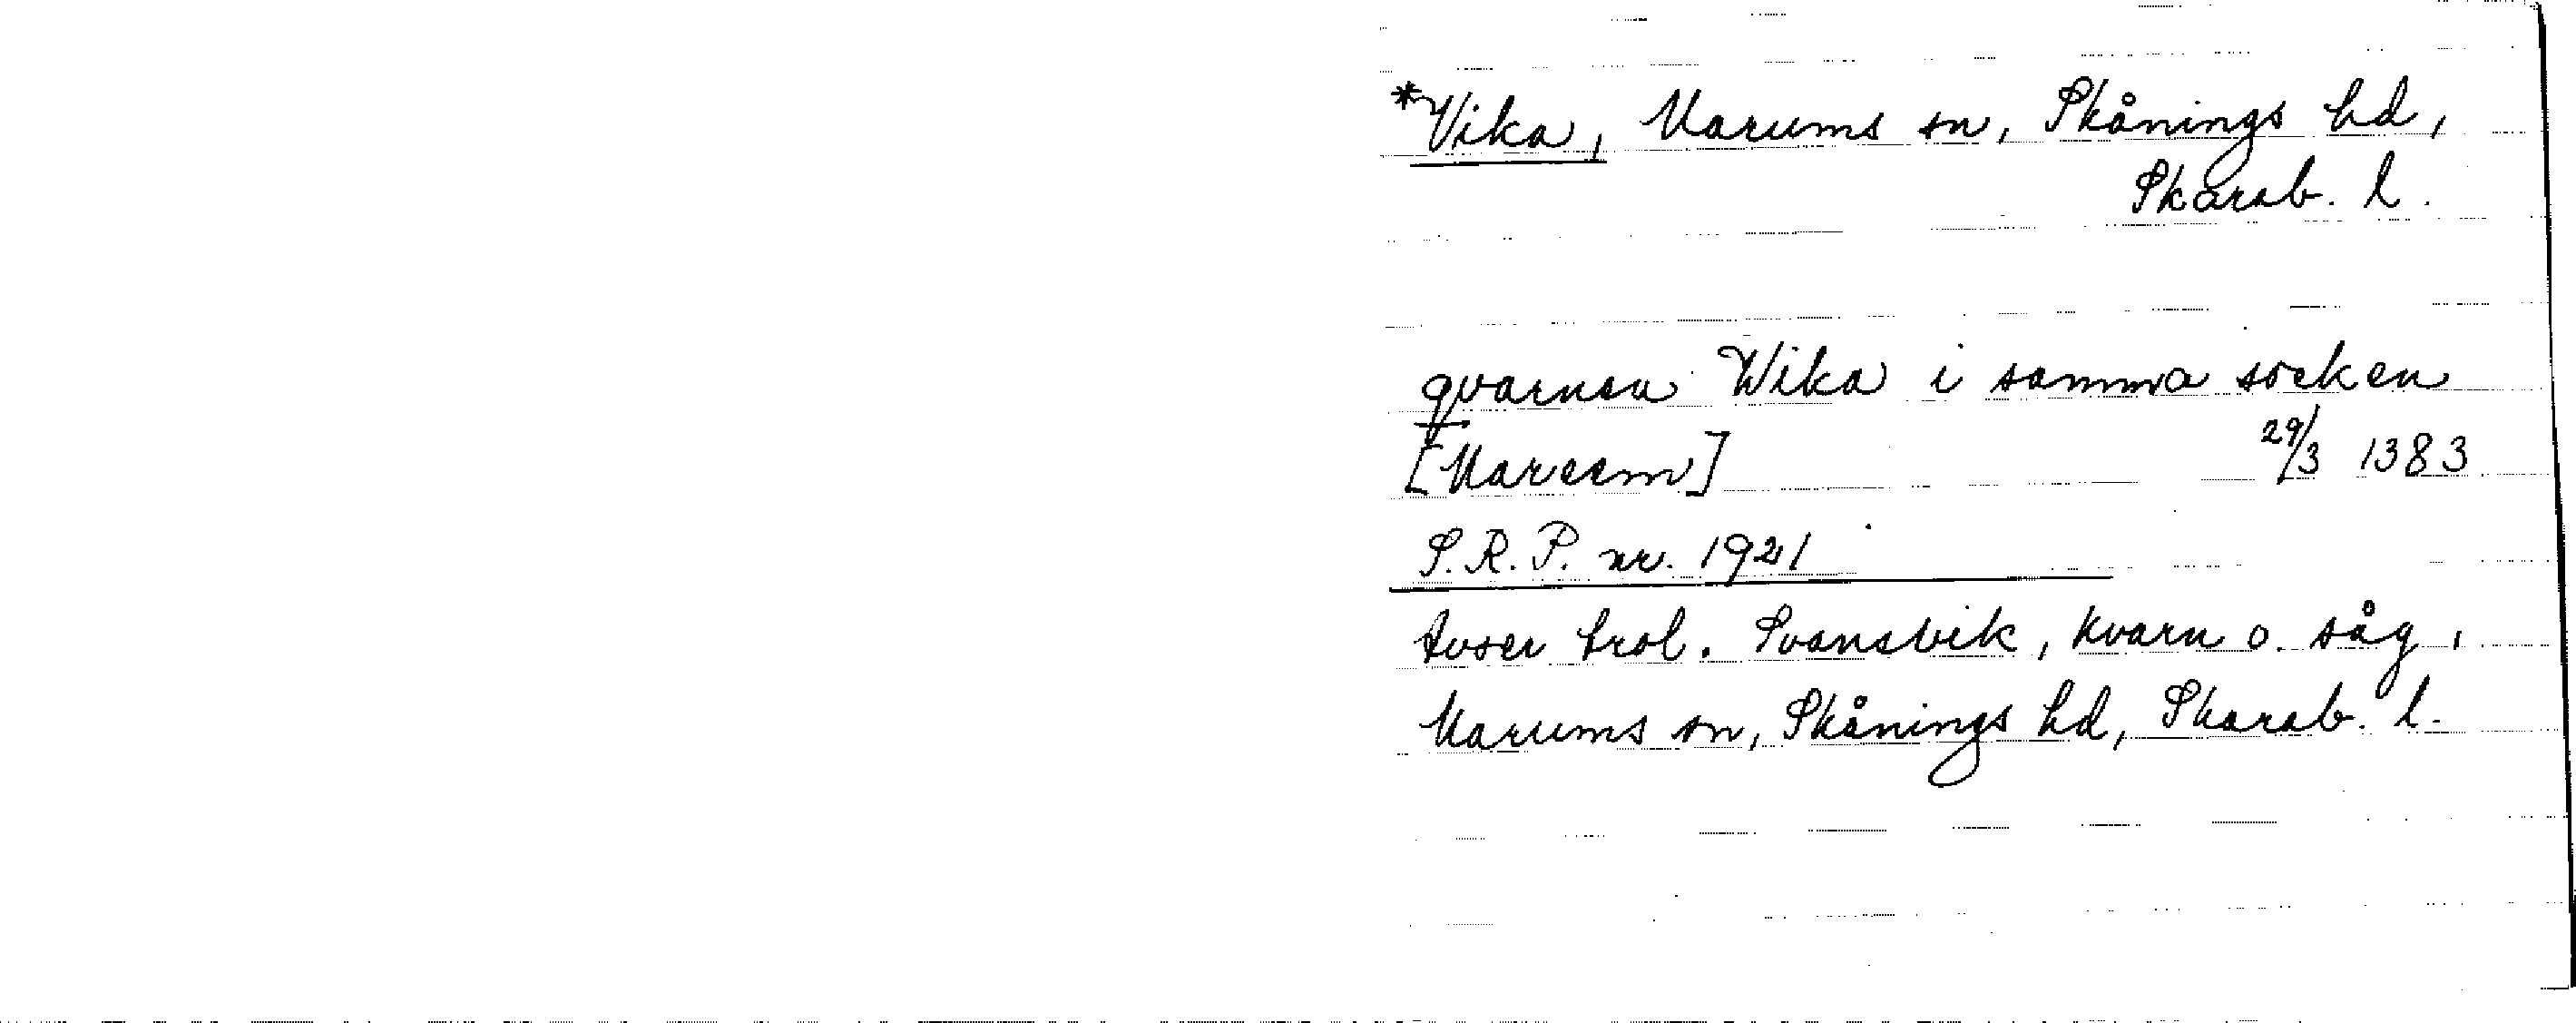 *Vika, Marums sn, Skånings hd,
Skarab. l.
qvarnen Wika i samma socken
[Marum] 29/3 1383
S.R.P. nr. 1921
Avser trol. Svansvik, kvarn o. såg,
Marums sn, Skånings hd, Skarab. l.